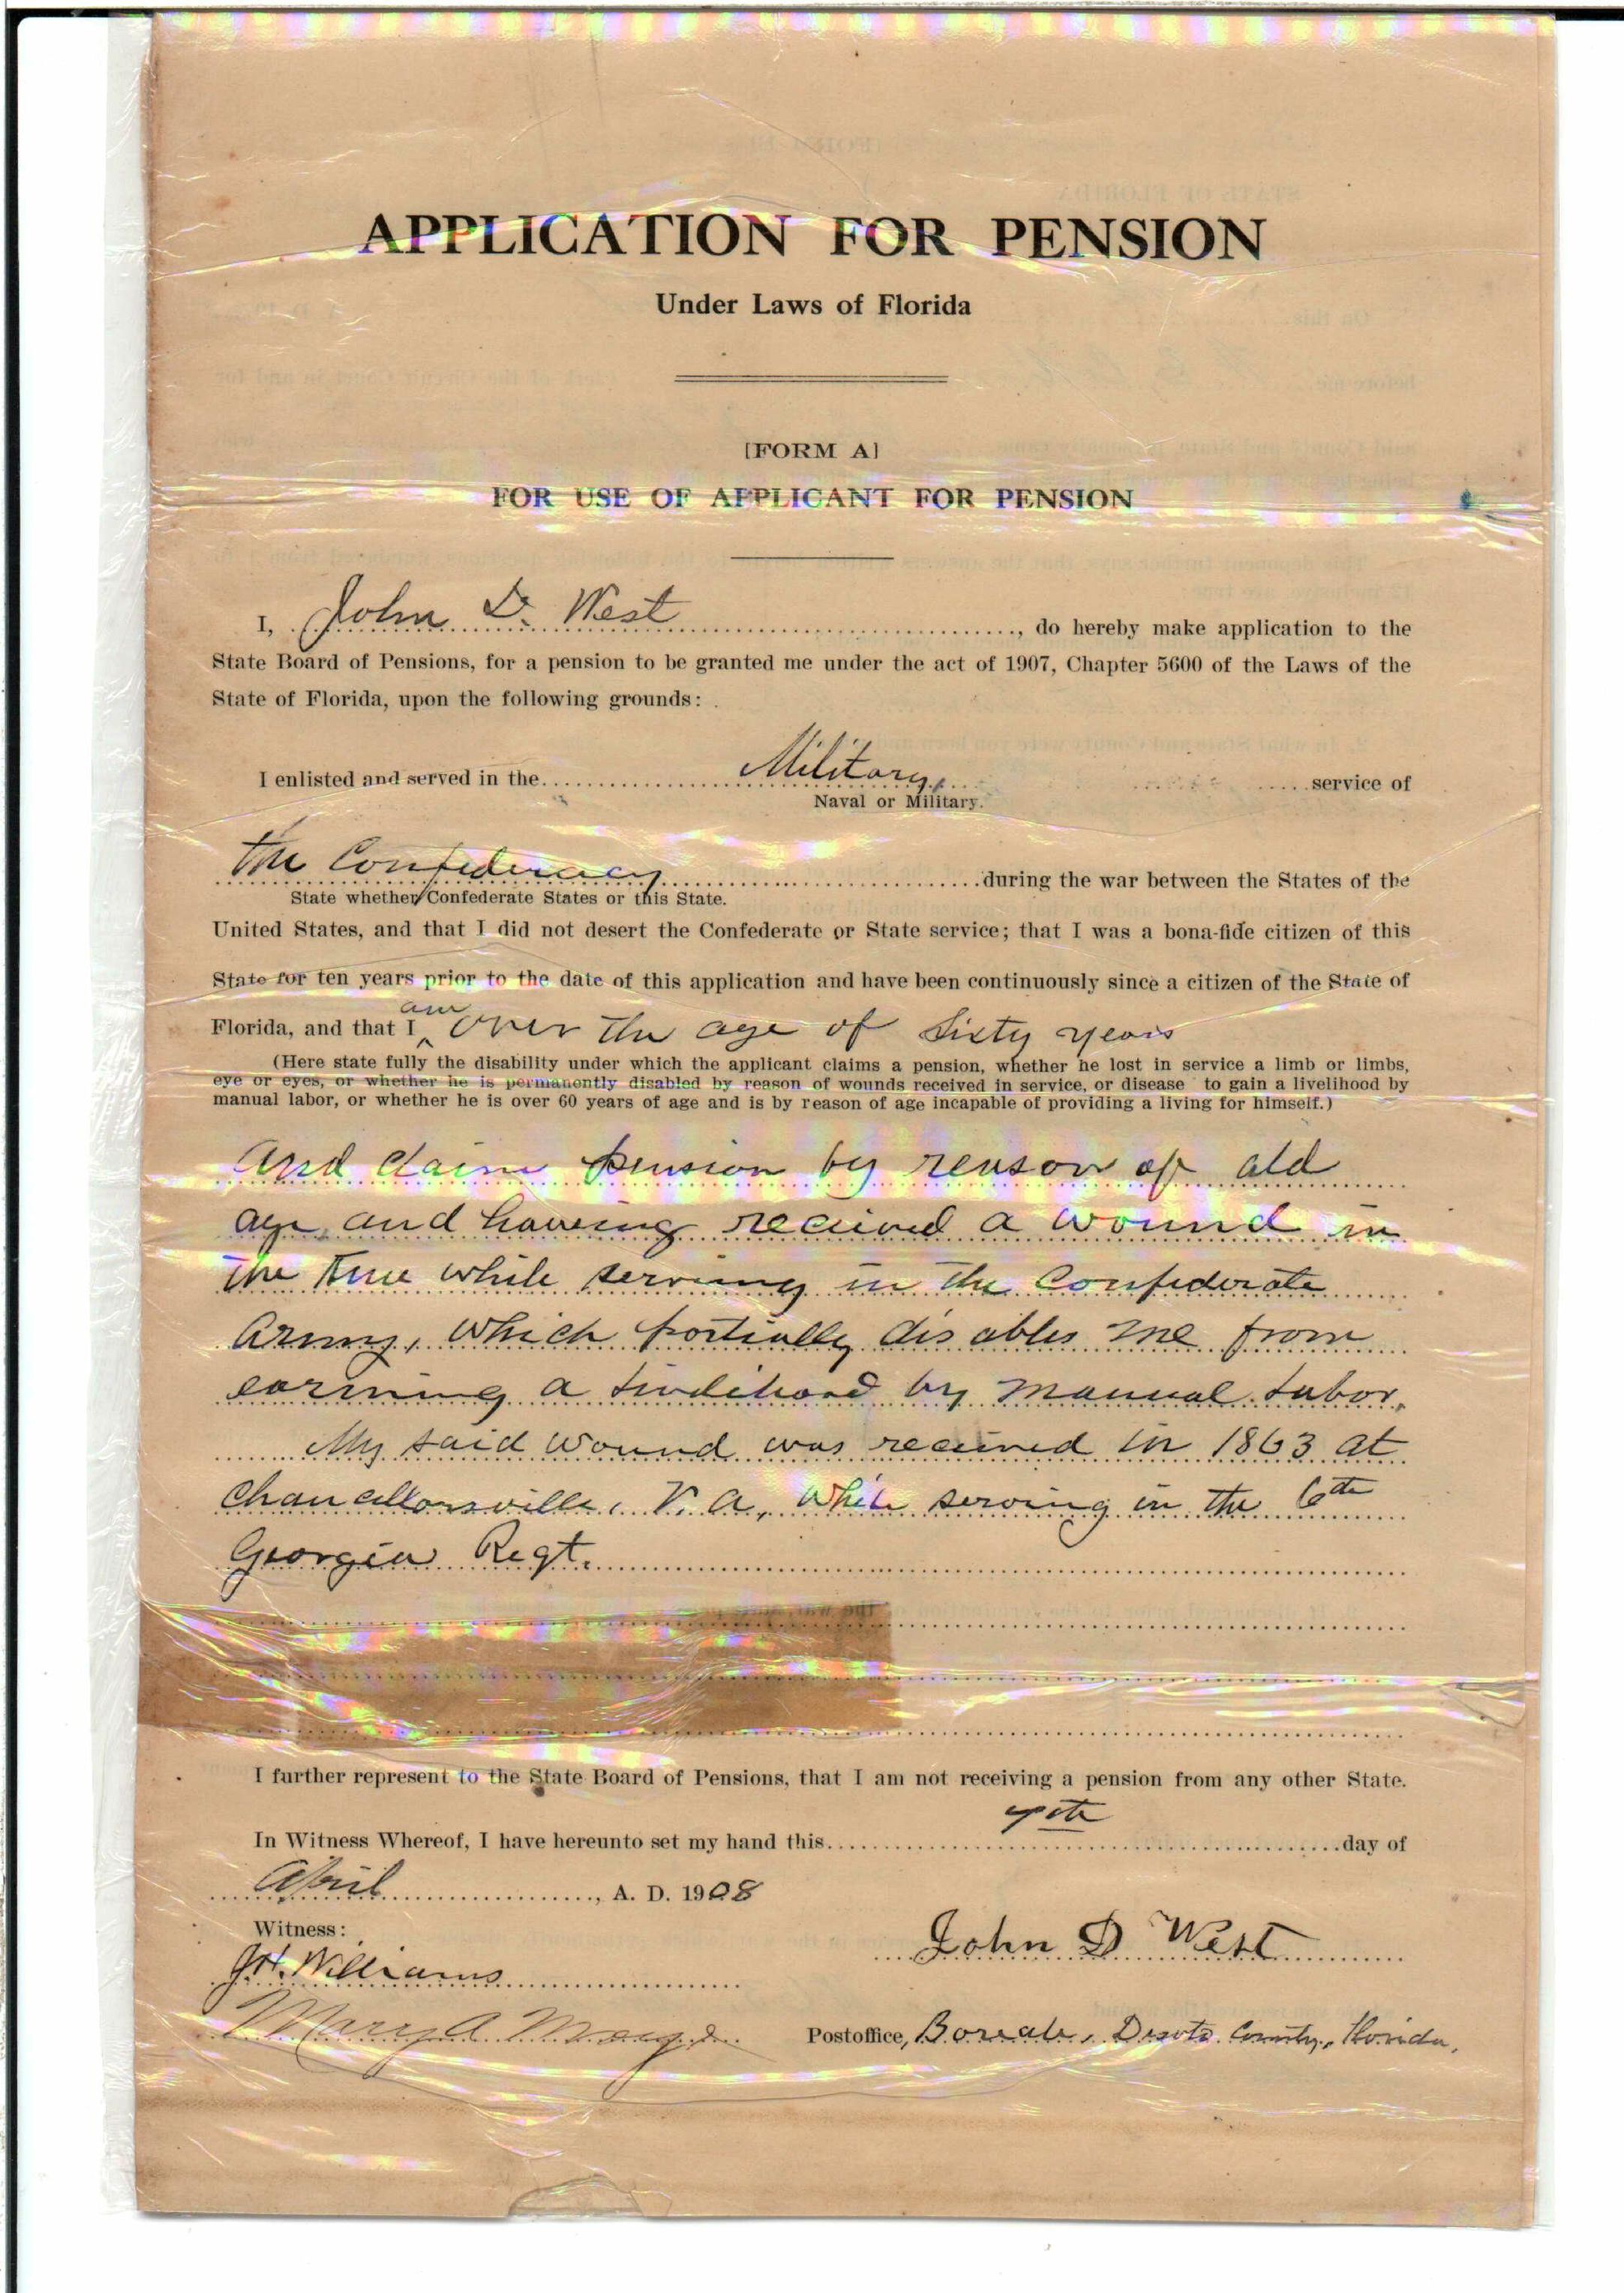 APPLICATION FOR PENSION
Under Laws of Florida
[FORM A]
FOR USE OF APPLICANT FOR PENSION
I, John D. West, do hereby make application to the
State Board of Pensions, for a pension to be granted me under the act of 1907, Chapter 5600 of the Laws of the
State of Florida, upon the following grounds:
I enlisted and served in the Military, service of
Naval or Military.
the Confederacy during the war between the States of the
State whether Confederate States or this State.
United States, and that I did not desert the Confederate or State service; that I was a bona-fide citizen of this
State for ten years prior to the date of this application and have been continuously since a citizen of the State of
Florida, and that I am over the age of sixty years
(Here state fully the disability under which the applicant claims a pension, whether he lost in service a limb or limbs,
eye or eyes, or whether he is permanently disabled by reason of wounds received in service, or disease to gain a livelihood by
manual labor, or whether he is over 60 years of age and is by reason of age incapable of providing a living for himself.)
and claim pension by reason of old
age, and having received a wound in
the knee while serving in the Confederate
Army, which partially disables me from
earning a livelihood by manual labor.
My said wound was received in 1863 at
Chancellorsville, V.a, while serving in the 6th
Georgia Regt.
I further represent to the State Board of Pensions, that I am not receiving a pension from any other State.
In Witness Whereof, I have hereunto set my hand this day of
April, A. D. 1908
Witness:
John D West
J.H. Williams
Mary A
Postoffice, Desoto County, Florida.